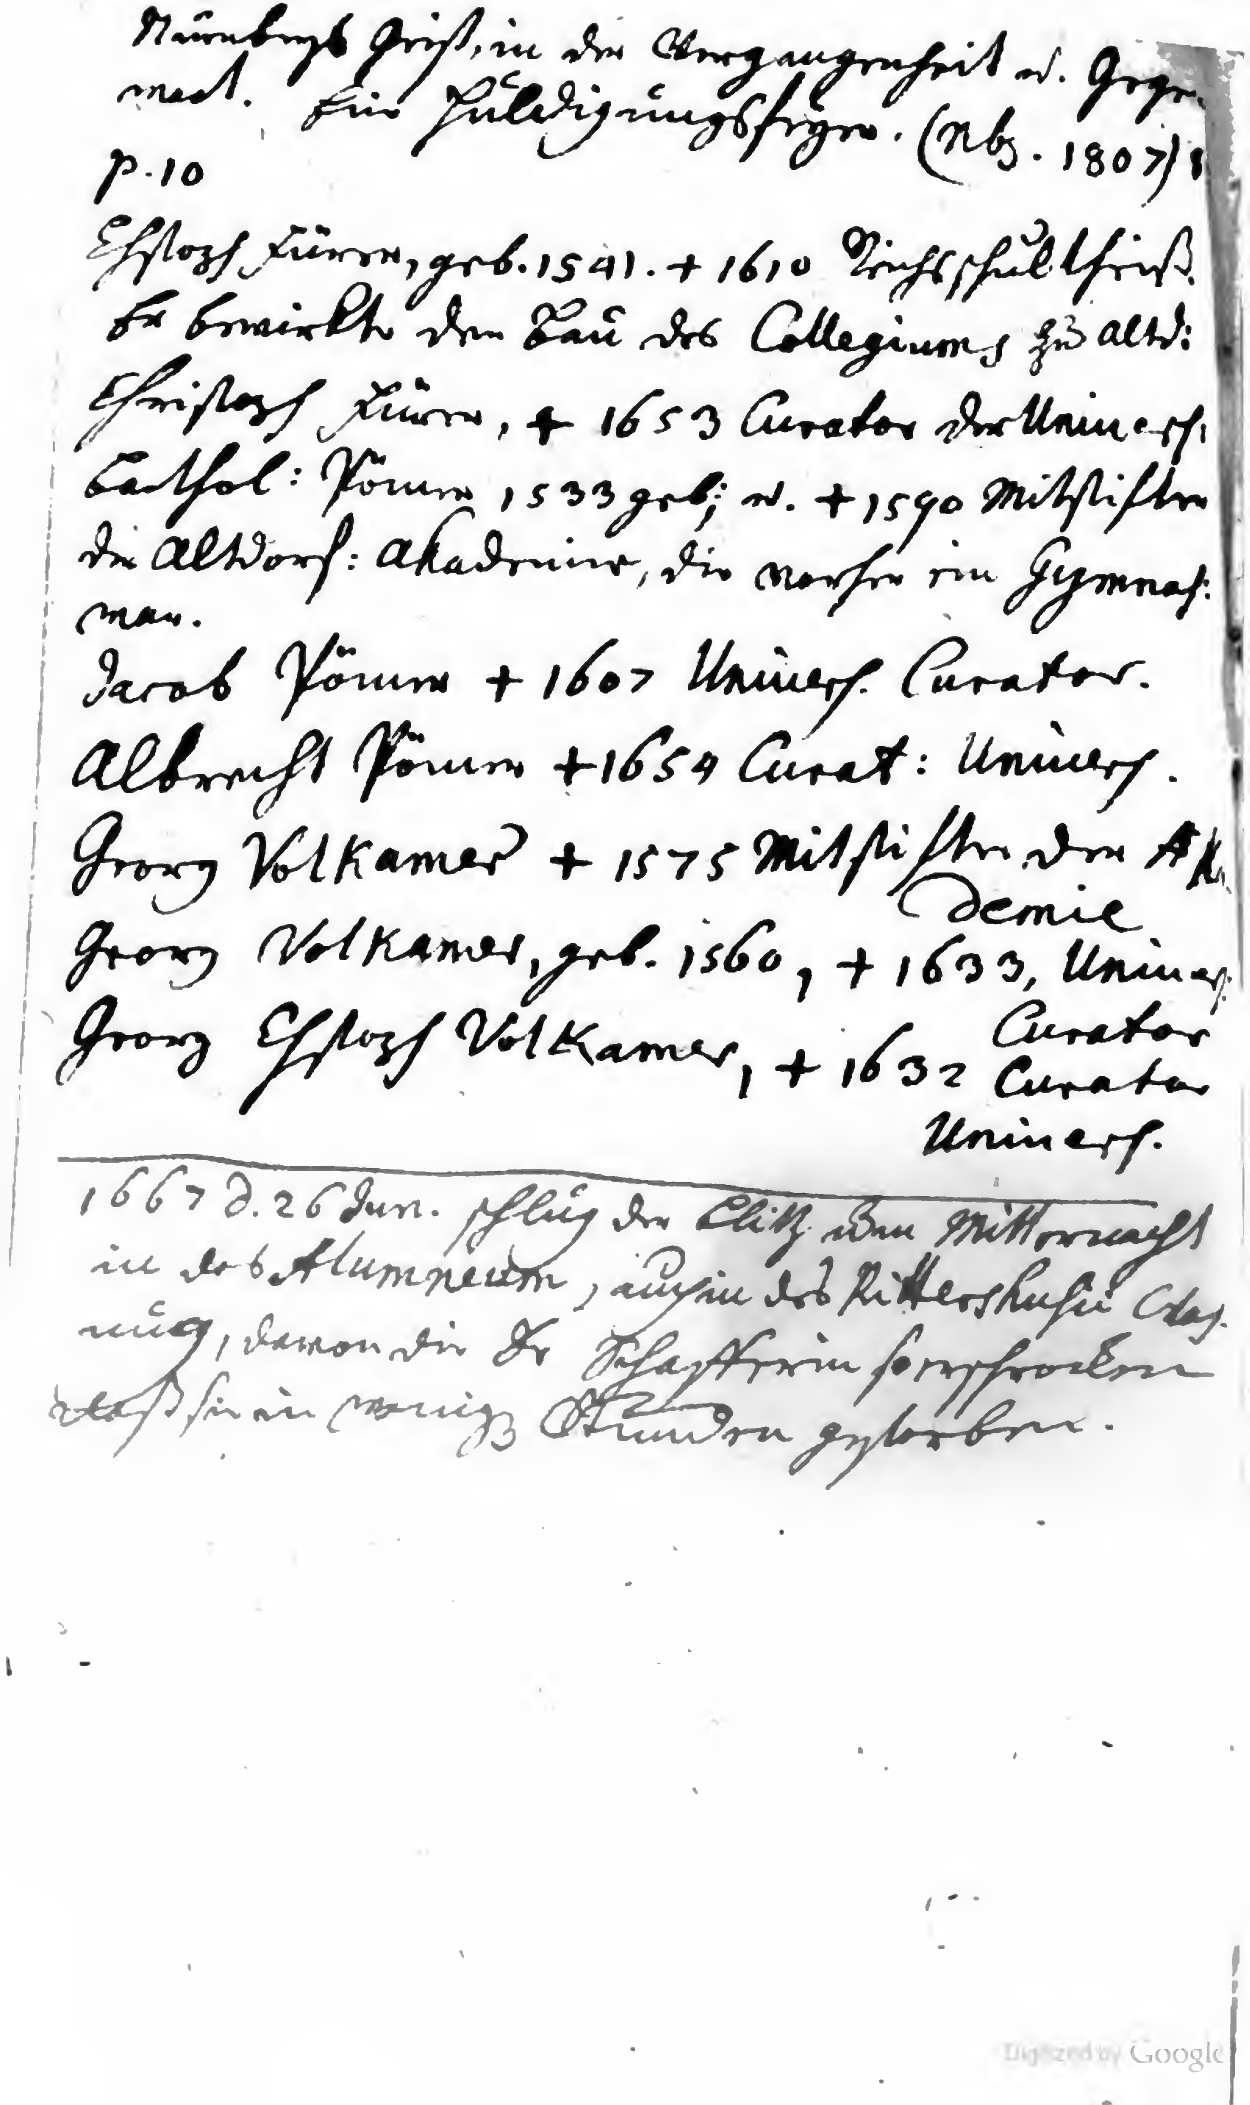 Nürnbergs Geist, in der Vergangenheit u. Gegen-
wart. Eine Huldigungsfeyer. (Nbg. 1807)
p. 10
Chstoph Fürer, geb. 1541. + 1610 Reichsschultheiß.
Er bewirkte den Bau des Collegiums zu Altd:
Christoph Fürer, + 1653 Curator der Univers.
Barthol: Pömer 1533 geb; u. + 1590 Mitstifter
der Altdorf: Akademie, die vorher ein Gymnas:
war.
Jacob Pömer + 1607 Univers. Curator.
Albrecht Pömer + 1654 Curat: Univers.
Georg Volkamer + 1575 Mitstifter der Aka
demie
Georg Volkamer, geb. 1560, + 1633, Univers.
Curator
Georg Chstoph Volkamer, + 1632 Curator
Univers.
1667 d. 26 Jun. schlug der Blitz um Mitternacht
in das Alumneum, auch in des Rittershusii
davon die Fr Schafferin so erschrocken
daß sie in wenig Stunden gestorben.
Digitized by Google